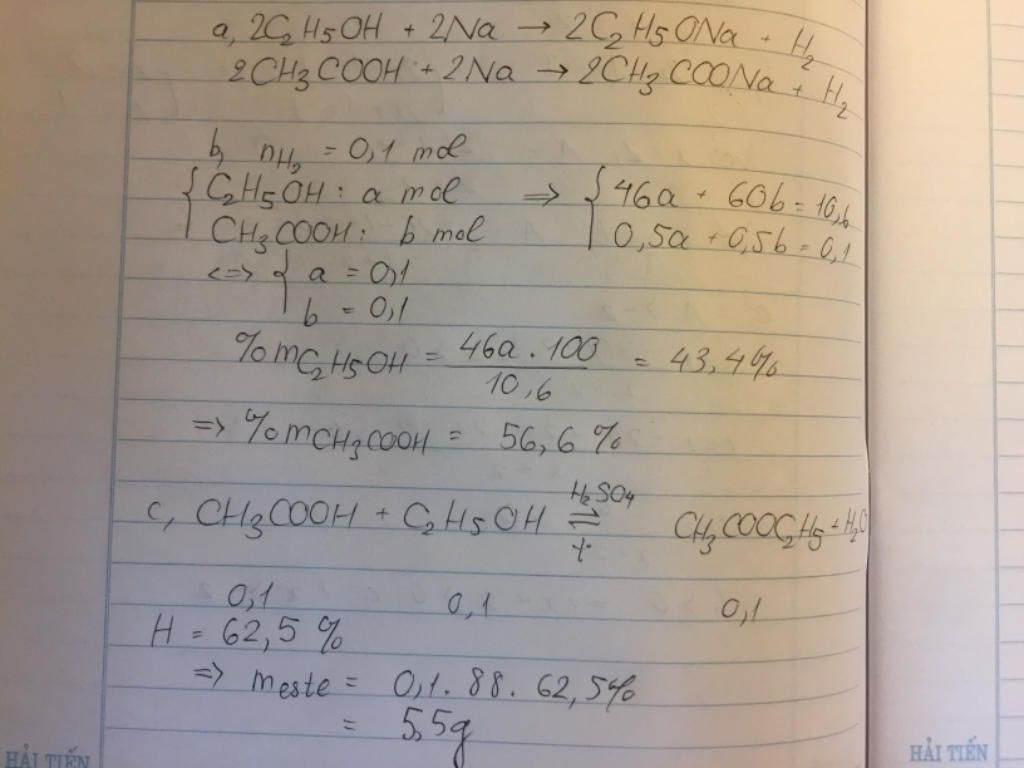 a, 2C₂H5OH + 2Na → 2C₂H5ONa + H₂
2CH3COOH + 2Na → 2CH3COONa + H₂
b, nH₂ = 0,1 mol
{ C₂H5OH : a mol ⇒ { 46a + 60b = 10,6
CH3COOH : b mol 0,5a + 0,5b = 0,1
<=> { a = 0,1
b = 0,1
%mC₂H5OH = 46a . 100 / 10,6 = 43,4%
=> %mCH3COOH = 56,6 %
c, CH3COOH + C₂H5OH ⇌ CH3COOC₂H5 + H₂O
H₂SO4
0,1 0,1 0,1
H = 62,5 %
=> meste = 0,1. 88. 62,5%
= 5,5g
HẢI TIẾN
HẢI TIẾN